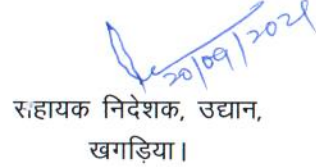 20/09/2021
सहायक निदेशक, उद्यान,
खगड़िया।